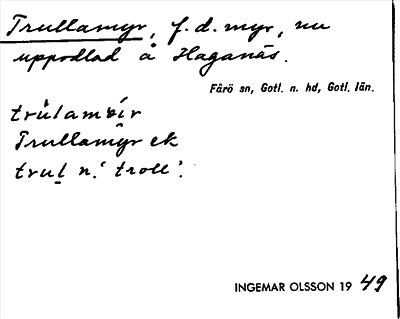 Trullamyr, f.d. myr, nu
uppodlad å Haganäs.
Fårö sn, Gotl. n. hd, Gotl. län.
Trullamyr ek
trul n. 'troll'.
INGEMAR OLSSON 19 49